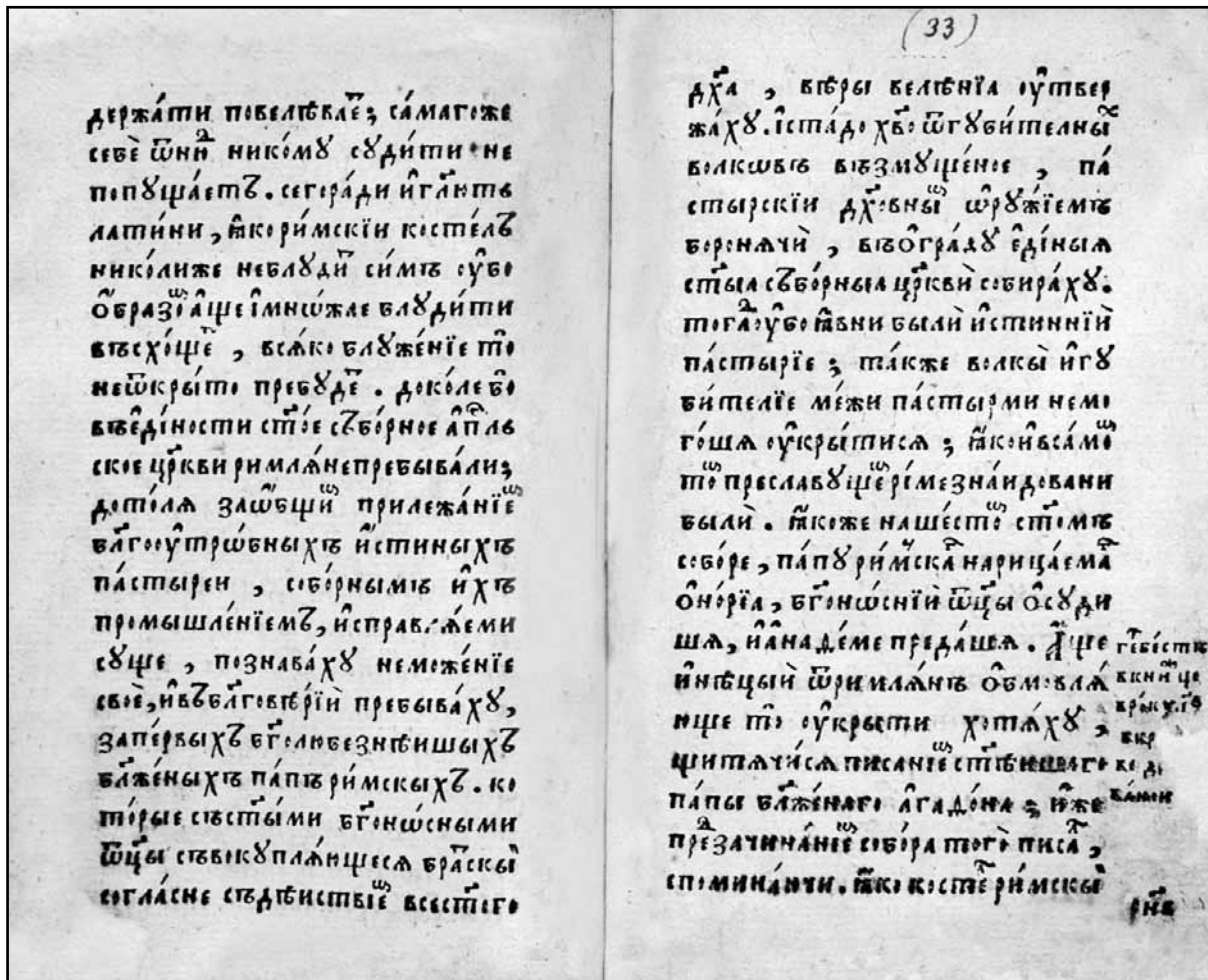 держа́ти повелѣвае҆т; са́магоже
себѐ ѿни҆х нико́му суди́ти не
попуща́етъ. сего́ра́ди и҆гл҃ютъ
лати́ни, ꙗ҆́ко ри́мскїи косте́лъ
нико́лиже неблꙋ́ди҆т си́мъ ᲂу҆́бо
ѻ҆́бразоⷨ а҆́ще и҆мнѡ́жае блꙋди́ти
въсхо́щеⷮ, вся́ко блꙋже́нїе то̀
неѿкры́то пребꙋ́деⷮ. доко́ле бо̀
въедїности ст҃о́е съ́бо́рное а҆пⷭ҇ль
ское цр҃кви римля́не пребыва́ли;
дото́ля заѻ҆́бщиⷨ прилежа́нїеⷨ
бл҃гоᲂу҆тро́бныхъ и҆́стиныхъ
па́стыреи, собо́рнымъ и҆́хъ
промышле́нїемъ, и҆справлѧ́еми
сꙋще, познава́хꙋ неможе́нїе
своѐ, и҆въбл҃говѣ́рїй пребыва́хꙋ,
запе́рвыхъ бг҃олюбезнѣ́ишыхъ
бл҃же́ныхъ па́пъ ри́мскыхъ. ко
то́рые съст҃ы́ми бг҃онѡ́сными
ѿц҃ы съвокꙋплѧ́ющеся бра́тскыⷨ
согла́сне съдѣ́иствїеⷨ всест҃о́го
(33)
дх҃а, вѣ́ры велѣ́нїа ᲂу҆твер
жа́хꙋ. и҆ста́до хв҃о ѿгꙋби́телныⷯ
волкѡвъ възмꙋще́ное, па́
стырскїи дх҃о́вныⷨ ѻ҆рꙋ́жїемъ
бороня́чи, въо҆гра́дꙋ е҆ди́ныя
ст҃ы́а съ́бо́рныа цр҃кви собира́хꙋ.
тогда̀ ᲂу҆́бо ꙗ҆́вни были̑ и҆́стиннїй
па́стырїе; та́кже волкы̀ и҆гꙋ
би́телїе ме́жи па́стырми немо
го́шѧ ᲂу҆кры́тися; ꙗ҆́ко и҆вса́моⷨ
тоⷨ преславꙋщеⷨ ри́ме зна́идовани
были̑. ꙗ҆́коже наше́стоⷨ ст҃о́мъ
собо́ре, па́пꙋ ри́мскаⷢ нарица́емаⷢ
ѻ҆но́рїа, бг҃онѡ́снїй ѿц҃ы ѻ҆сꙋди
шѧ, и҆а҆на де́ме преда́шеѧ. а҆́ще
и҆нѣ́цый ѿримля́нъ ѻ҆бмовля́
юще то̀ ᲂу҆кры́сти хотя́хꙋ,
щитя́чися писа́нїеⷨ ст҃ѣ́ишаго
па́пы бл҃же́наго а҆гадо́на; и҆́же
преⷣзачина́нїеⷨ собо́ра тогѡ̀ писа́л,
спомина́ючи. ꙗ҆́ко косте́лⷧ ри́мскыⷨ
рнв